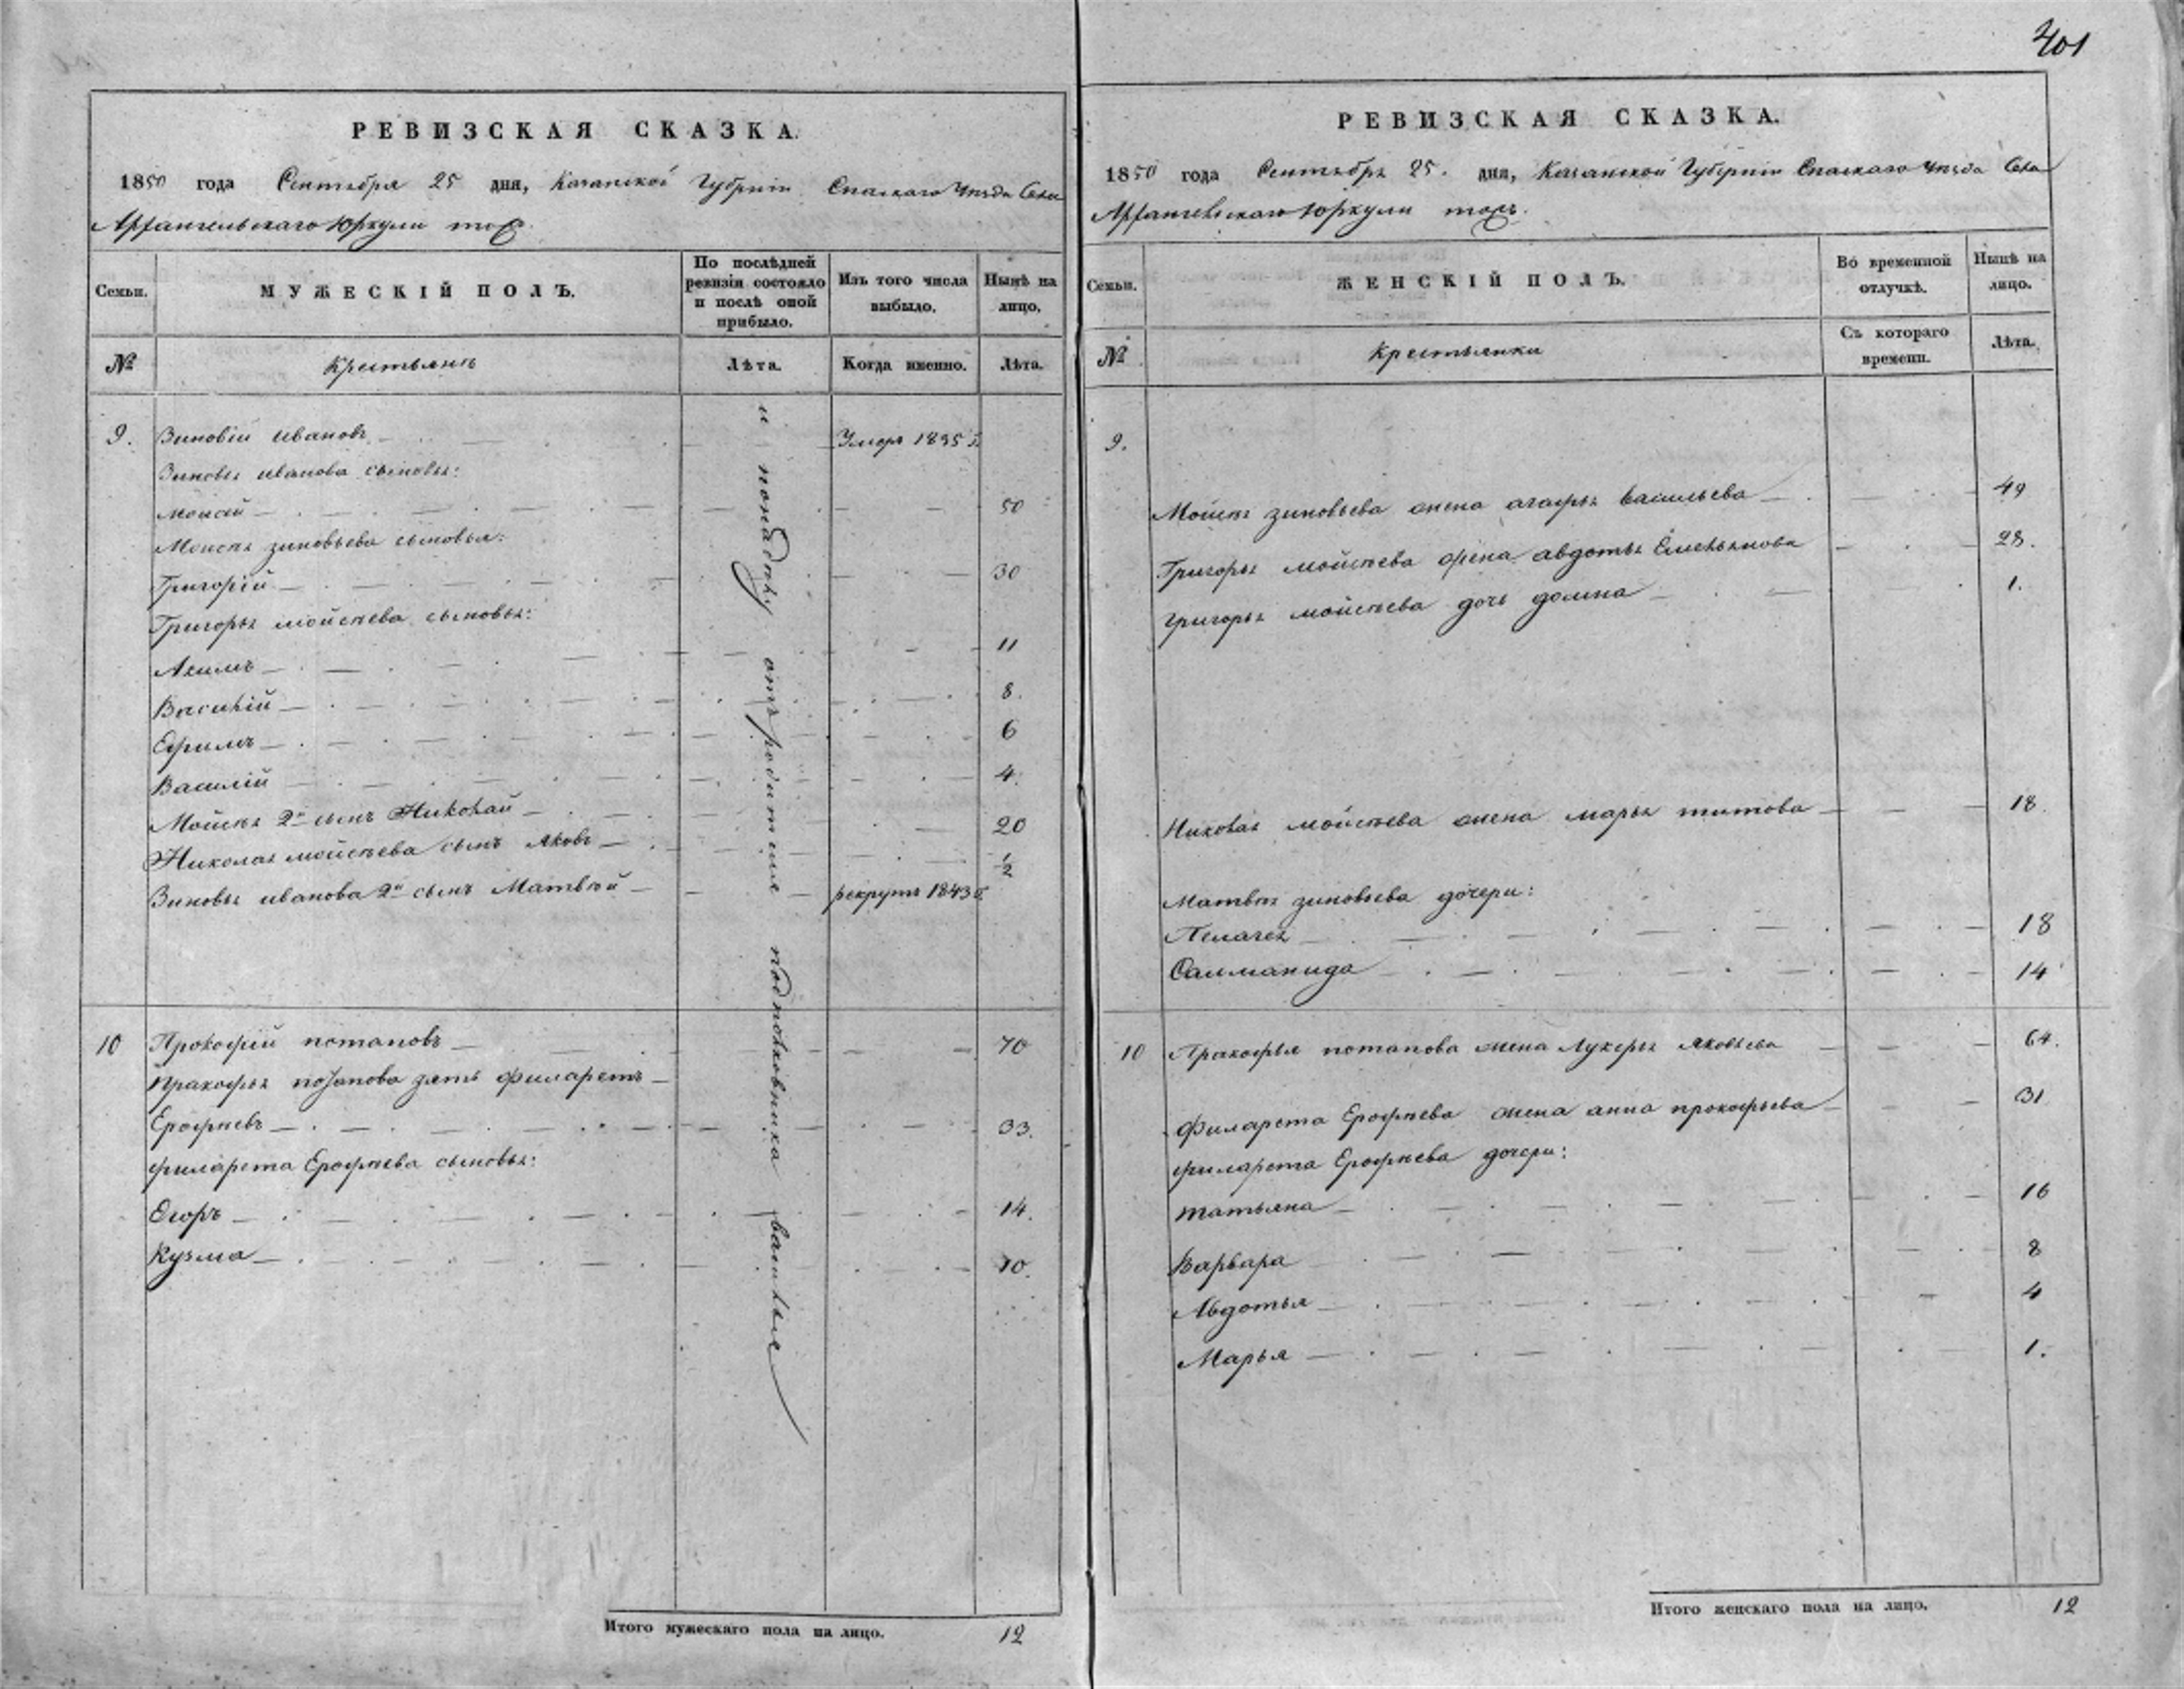 401
РЕВИЗСКАЯ СКАЗКА.
1850 года Сентября 25 дня, Казанской Губрніи Спаскаго Уѣзда Села
Архангельскаго Юркули тож
Семьи.
МУЖЕСКІЙ ПОЛЪ.
По послѣдней ревизіи состояло и послѣ оной прибыло.
Изъ того числа выбыло.
Нынѣ на лицо.
№
Крестьянъ
Лѣта.
Когда именно.
Лѣта.
9. Зиновій ивановъ Умеръ 1835 г.
Зиновья иванова сыновья:
Моисей 50
Моисѣя зиновьева сыновья:
Григорій 30
Григорья мойсѣева сыновья:
Акимъ 11
Василій 8.
Ефимъ 6
Василій 4.
Мойсѣя 2й сынъ Николай 20
Николая мойсѣева сынъ Яковъ 1/2
Зиновья иванова 2й сынъ Матвѣй рекрутъ 1843 г.
10 Прокофій потаповъ 70
Пракофья потапова зять филаретъ
Ерофѣевъ 33.
филарета Ерофѣева сыновья:
Егоръ 14.
Кузма 10.
отъ родителя подполковника
Итого мужескаго пола на лицо. 12
РЕВИЗСКАЯ СКАЗКА.
1850 года Сентября 25. дня, Казанской Губерніи Спаскаго Уѣзда Села
Архангельскаго Юркули тож.
Семьи.
ЖЕНСКІЙ ПОЛЪ.
Во временной отлучкѣ.
Нынѣ на лицо.
№
Крестьянки
Съ котораго времени.
Лѣта.
9.
Мойсѣя зиновьева жена агафья васильева 49
Григорья мойсѣева жена авдотья Емельянова 28.
григорья мойсѣева дочь домна 1.
Николая мойсѣева жена марья титова 18.
Матвѣя зиновьева дочери:
Пелагея 18
Салманида 14
10 Пракофья потапова жена Лукерья яковлева 64.
Филарета Ерофѣева жена анна прокофьева 31
филарета Ерофѣева дочери:
татьяна 16
Варвара 8
Авдотья 4
Марья 1.
Итого женскаго пола на лицо. 12